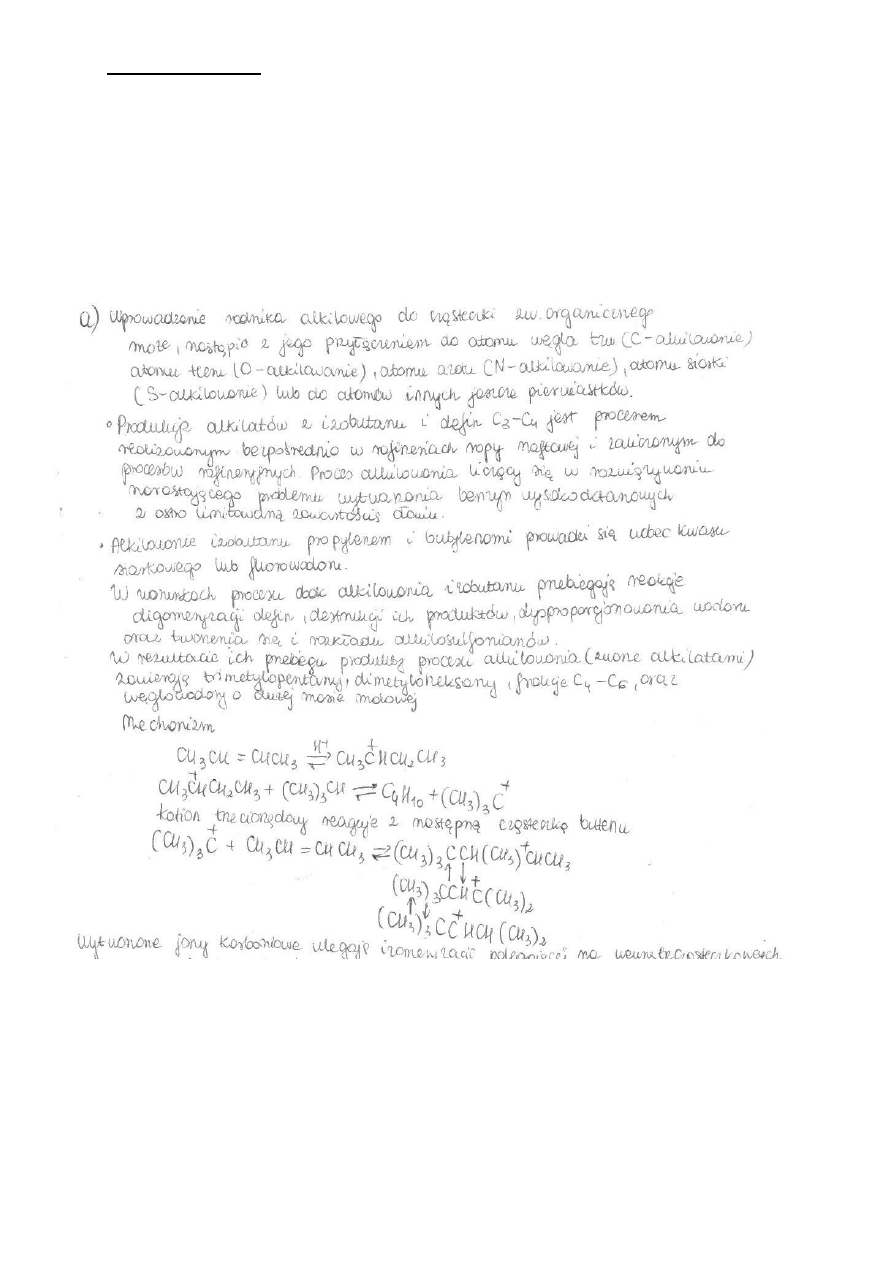 a) Wprowadzenie rodnika alkilowego do cząsteczki zw. organicznego
może, nastąpić z jego przyłączeniem do atomu węgla tzw (C-alkilowanie)
atomu tlenu (O-alkilowanie), atomu azotu (N-alkilowanie), atomu siarki
(S-alkilowanie) lub do atomów innych jeszcze pierwiastków.
• Produkcje alkilatów z izobutanu i olefin C3-C4 jest procesem
realizowanym bezpośrednio w rafineriach ropy naftowej i zaliczonym do
procesów rafineryjnych. Proces alkilowania liczący się w rozwiązywaniu
narastającego problemu wytwarzania benzyn wysokooktanowych
z ostro limitowaną zawartością ołowiu.
• Alkilowanie izobutanu propylenem i butylenami prowadzi się wobec kwasu
siarkowego lub fluorowodoru.
W warunkach procesu obok alkilowania izobutanu przebiegają reakcje
oligomeryzacji olefin, destrukcji ich produktów, dysproporcjonowania wodoru
oraz tworzenia się i rozkładu alkilosulfonianów.
W rezultacie ich przebiegu produkty procesu alkilowania (zwane alkilatami)
zawierają trimetylopentany, dimetyloheksany, frakcje C4-C6, oraz
węglowodory o dużej masie molowej
Mechanizm
CH3CH = CHCH3 ⇌ H+ CH3C+HCH2CH3
CH3C+HCH2CH3 + (CH3)3CH ⇌ C4H10 + (CH3)3C+
kation trzeciorzędowy reaguje z następną cząsteczką butenu
(CH3)3C+ + CH3CH = CHCH3 ⇌ (CH3)3CCH(CH3)+CHCH3
↑↓
(CH3)3CCHC+(CH3)2
↑↓
(CH3)3CC+HCH(CH3)2
Wytworzone jony karboniowe ulegają izomeryzacji polegającej na wewnątrzcząsteczkowych